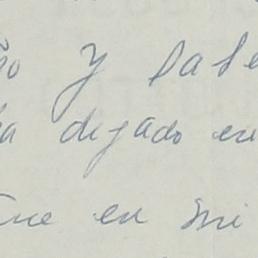 y sabe
ha dejado en
que en mi